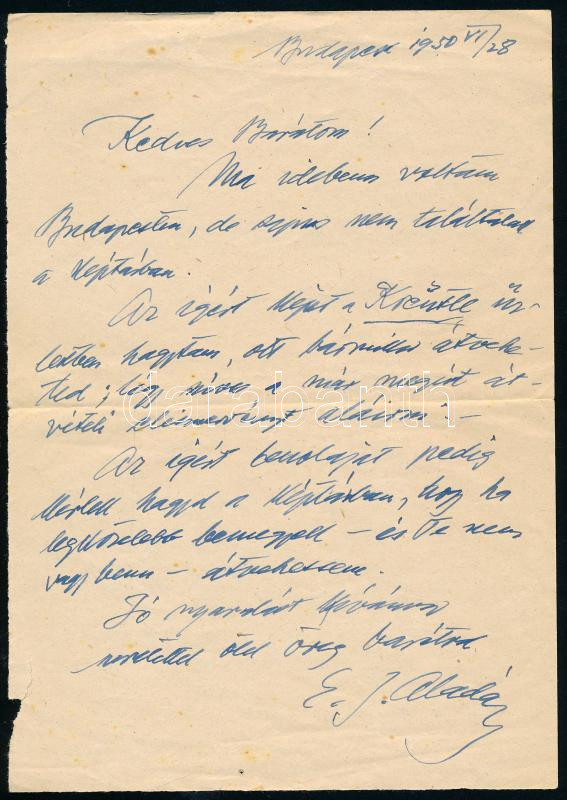 Budapest 1950 VI/28
Kedves Barátom!
Ma idebenn voltam
Budapesten, de sajnos nem találtalak
a Képtárban.
Az igért képet a Kreutle üz-
letben hagytam, ott bármikor átvehe-
ted; légy szíves a már megírt át-
vételi elismervényt aláírni. –
Az igért pedig
kérlek hagyd a Képtárban, hogy ha
legközelebb bemegyek – és Te nem
vagy benn – átvehessem.
Jó nyaralást kívánva
szeretettel ölel öreg barátod
E. I. Aladár
darabanth